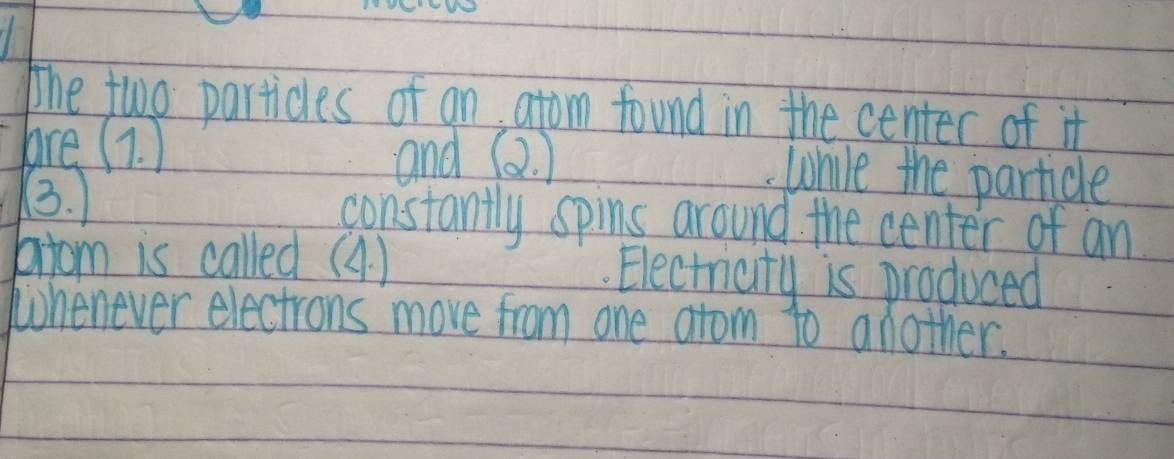 The two particles of an atom found in the center of it
are (1.) and (2.) . While the particle
(3.) constantly spins around the center of an
atom is called (4.) . Electricity is produced
whenever electrons move from one atom to another.